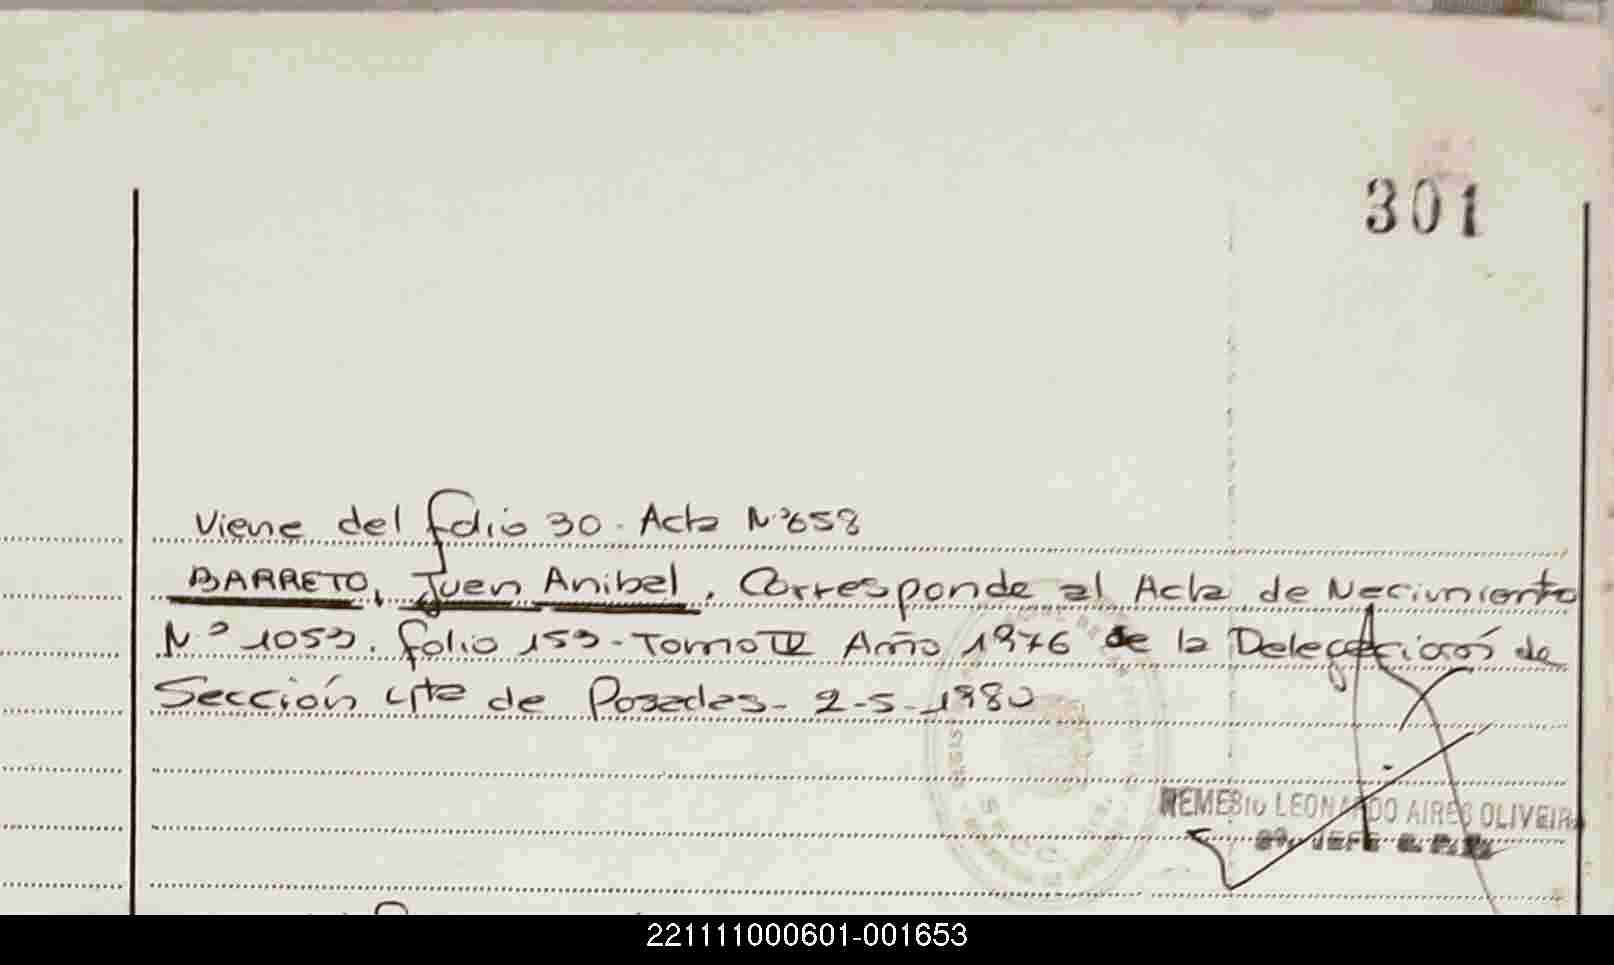 301
Viene del folio 30. Acta Nº658
BARRETO, Juan Anibal. Corresponde al Acta de Nacimiento
Nº 1053. folio 153 - Tomo IV Año 1976 de la Delegación de
Sección 4ta de Posadas - 2-5-1980
REMESIO LEONARDO AIRES OLIVEIRA
JEFE
221111000601-001653